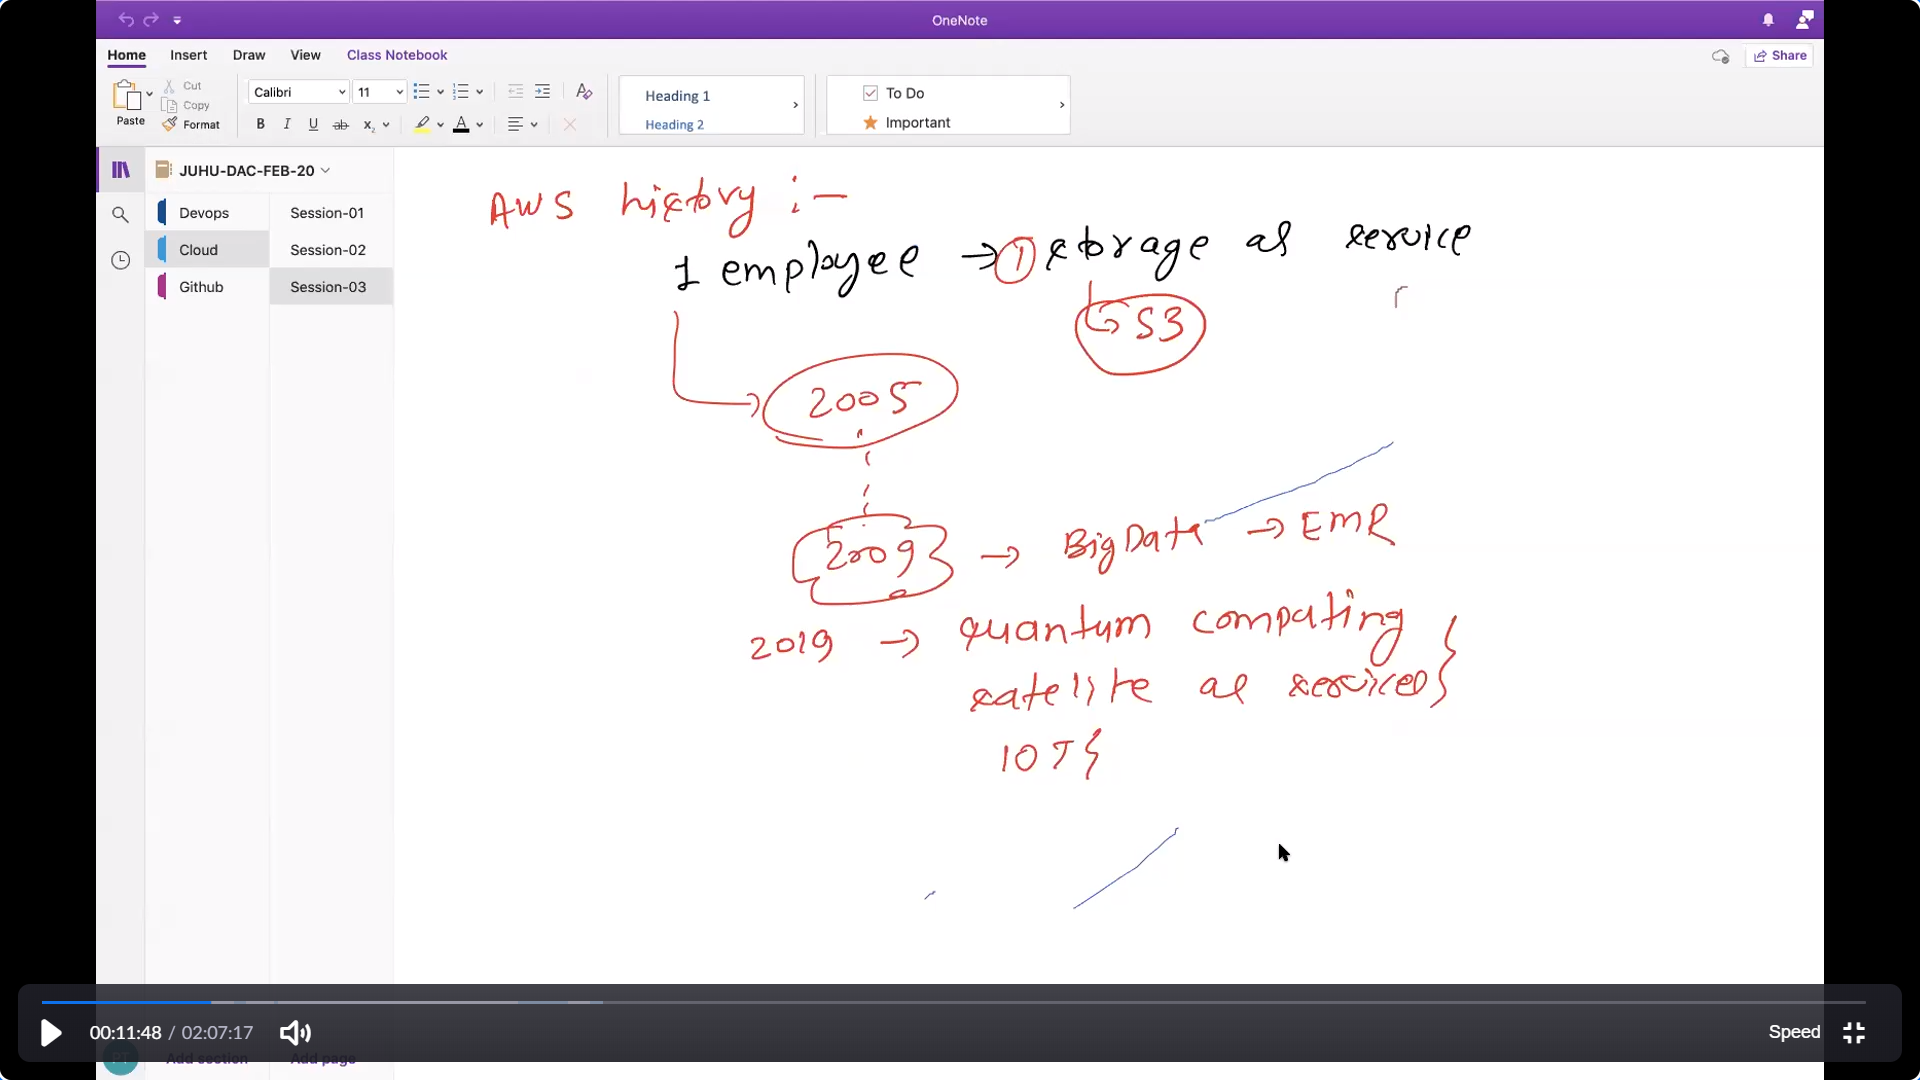 OneNote
Home Insert Draw View Class Notebook Share
Paste Cut Copy Format Calibri 11 B I U ab x₂ A Heading 1 Heading 2 To Do Important
JUHU-DAC-FEB-20
Devops Session-01
Cloud Session-02
Github Session-03
AWS history :-
1 employee → ① storage as service
S3
2005
2009 → BigData → EMR
2019 → quantum computing }
satelite as services }
IOT {
00:11:48 / 02:07:17
Speed
PT Add section Add page